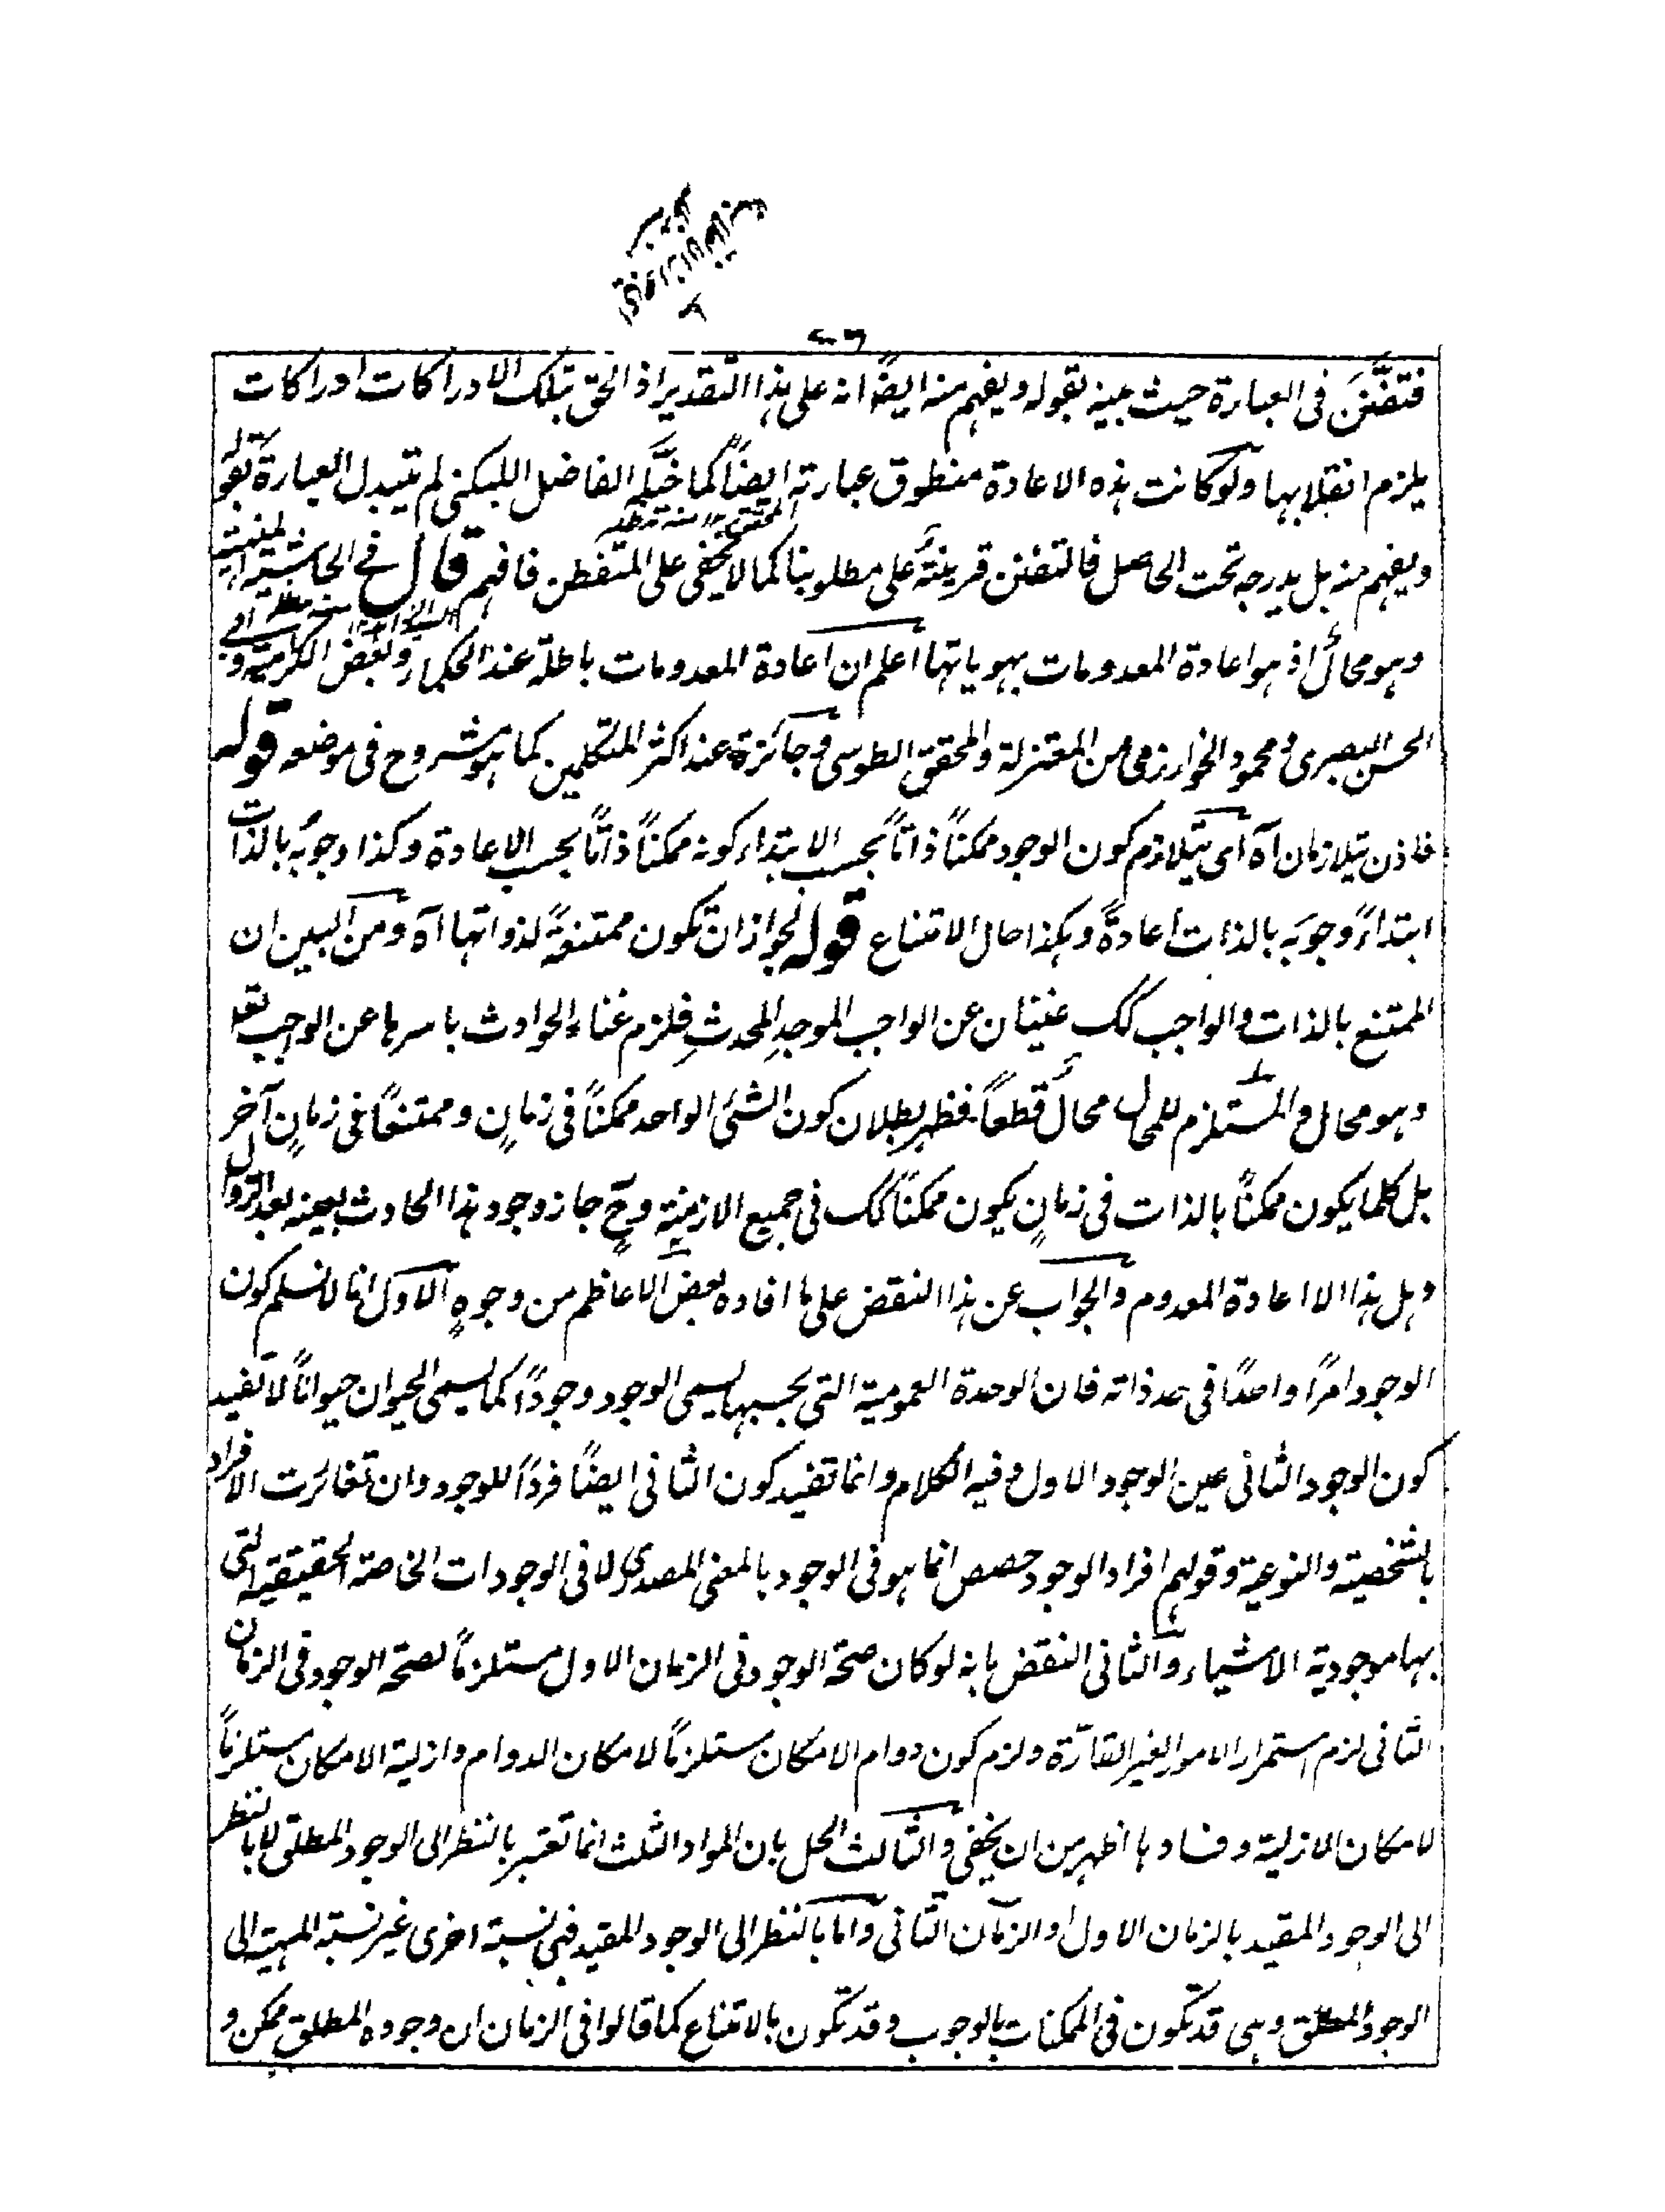 فتفنَّنَ فى العبارة حيث بينه بقوله ويفهم منه ايضًا انه على هذا التقدير اذ الحق بتلك الادراكات ادراكات
يلزم انقلابها ولو كانت هذه الاعادة منطوق عبارته ايضاً كما خيَّله الفاضل اللبكنى لم تتبدل العبارة بقوله
ويفهم منه بل يدرجه تحت الحاصل فالتفنن قرينةٌ على مطلوبنا كما لا يخفى على المتفطن فافهم قال فى الحاشية المنهية
وهو محالٌ اذ هو اعادة المعدومات بهوياتها اعلم ان اعادة المعدومات باطلة عند الحكماء وبعض الكرامية و
الحسن البصرى ومحمود الخوارزمى من المعتزلة والمحقق الطوسى وجائزة عند اكثر المتكلمين كما هو مشروح فى موضعه قوله
فاذن يتلازمان آه اى يتلازم كون الوجود ممكناً ذاتاً بحسب الابتداء كونه ممكناً ذاتاً بحسب الاعادة وكذا وجوبُه بالذات
ابتداءً وجوبَه بالذات اعادةً وهكذا حال الامتناع قوله لجواز ان تكون ممتنعةً لذواتها آه ومن البين ان
الممتنع بالذات والواجب كك غنيان عن الواجب الموجدِ المحدثِ فلزم غناء الحوادث باسرها عن الواجب تعم
وهو محال والمستلزم للمحال محالٌ قطعاً فظهر بطلان كون الشئ الواحد ممكناً فى زمانٍ وممتنعًا فى زمانٍ آخر
بل كلما يكون ممكناً بالذات فى زمانٍ يكون ممكناً كك فى جميع الازمنة وحٍ جاز وجود هذا الحادث بعينه بعد الزوال
وهل هذا الا اعادة المعدوم والجواب عن هذا النقض على ما افاده بعض الاعاظم من وجوهٍ الاول انا لا نسلم كون
الوجود امرًا واحدًا فى حد ذاته فان الوحدة العمومية التى بحسبها يسمى الوجود وجودًا كما يسمى الحيوان حيوانًا لا تفيد
كون الوجود الثانى عين الوجود الاول وفيه الكلام وانما تفيد كون الثانى ايضًا فردًا للوجود وان تغائرت الافراد
بالشخصية والنوعية وقولهم افراد الوجود حصص انما هو فى الوجود بالمعنى المصدرى لا فى الوجودات الخاصة الحقيقية التى
بها موجودية الاشياء والثانى النقض بانه لو كان صحة الوجود فى الزمان الاول مستلزماً لصحة الوجود فى الزمان
الثانى لزم استمرار الامور الغير القارّة ولزم كون دوام الامكان مستلزماً لامكان الدوام وازلية الامكان مستلزماً
لامكان الازلية وفسادها اظهر من ان يخفى والثالث الحل بان المواد الثلث انما تعتبر بالنظر الى الوجود المطلق لا بالنظر
الى الوجود المقيد بالزمان الاول او الزمان الثانى واما بالنظر الى الوجود المقيد فهى نسبة اخرى غير نسبة المهية الى
الوجود المطلق وهى قد تكون فى الممكنات بالوجوب وقد تكون بالامتناع كما قالوا فى الزمان ان وجوده المطلق ممكن و